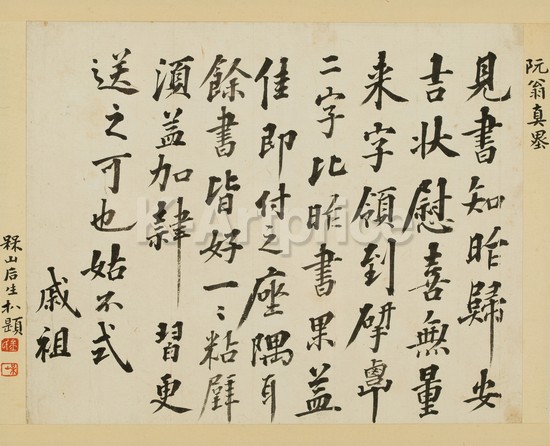 阮翁真墨
見書知昨歸安
吉状慰喜無量
来字領到硏
二字比昨書果益
佳即付之座隅耳
餘書皆好一〻粘壁
須益加隷習更
送之可也姑不式
戚祖
山后生朴題
K-Artprice